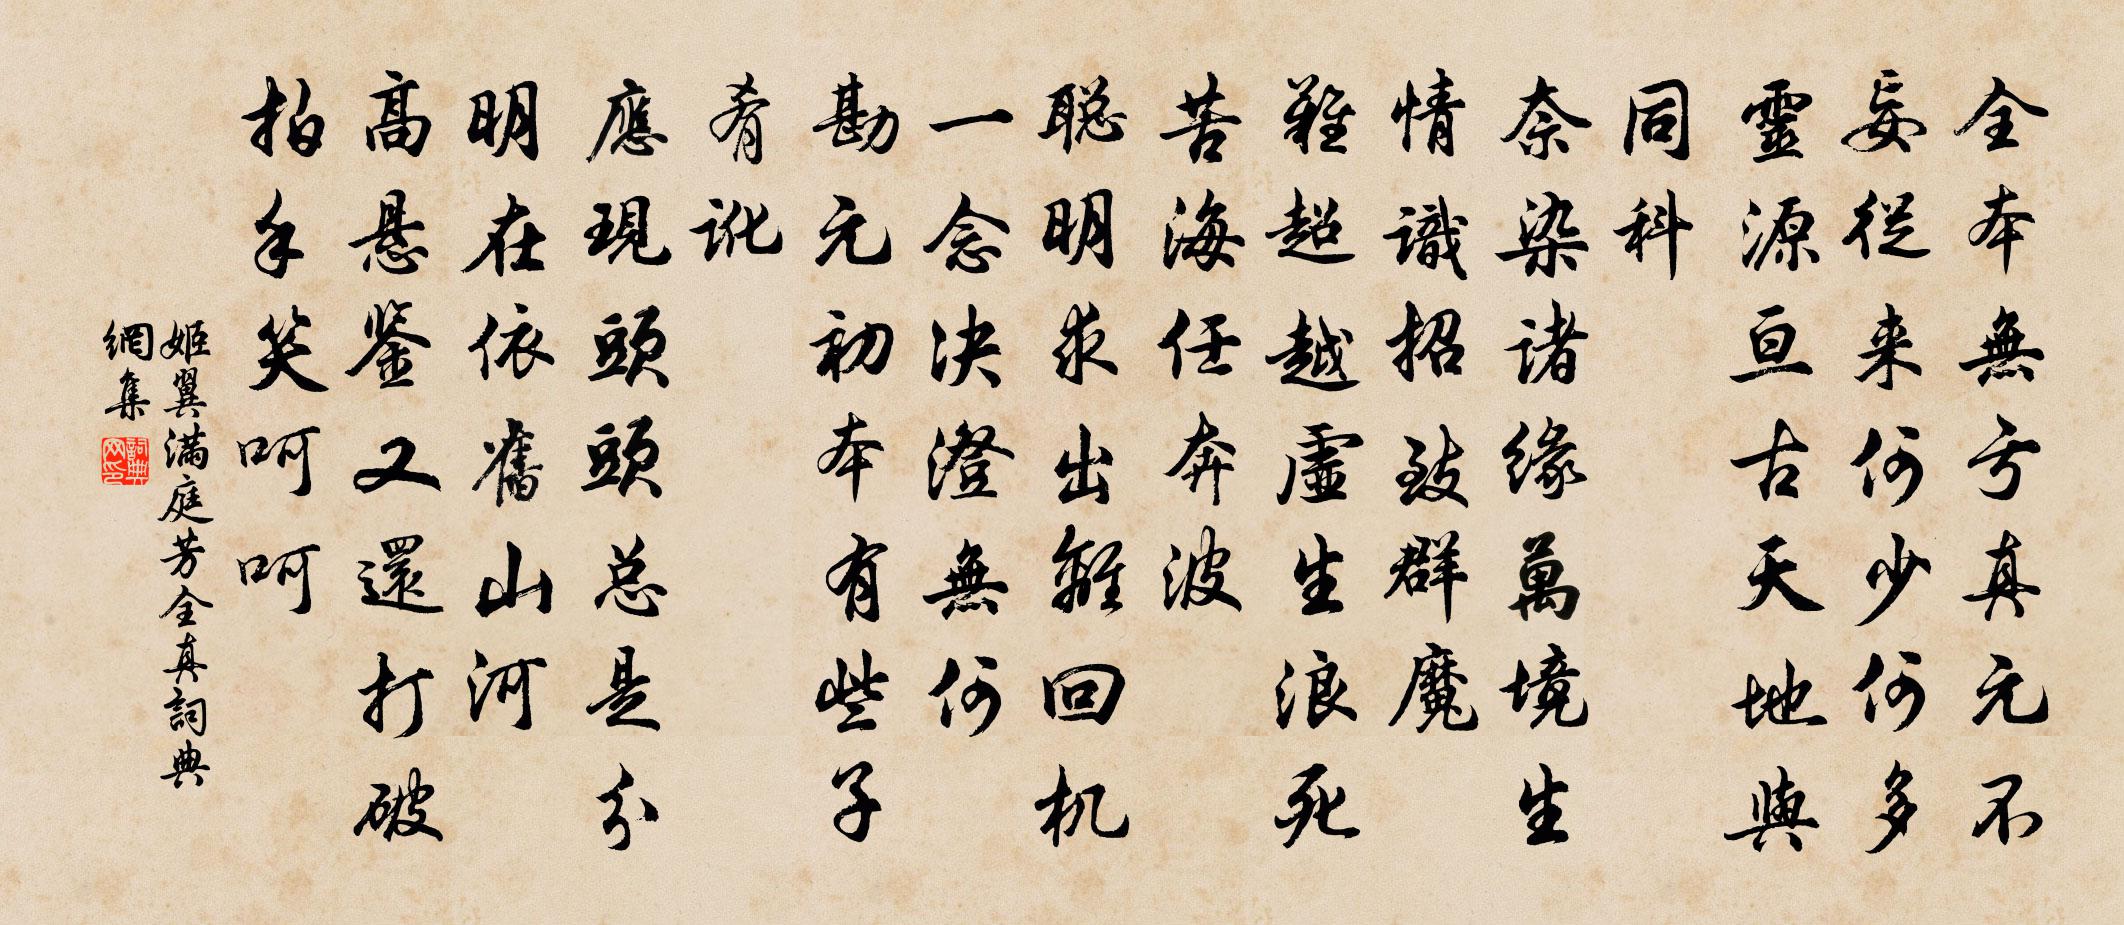 全本無亏真元不
妄從来何少何多
靈源亘古天地與
同科
奈染诸缘萬境生
情識招致群魔
難超越虚生浪死
苦海任奔波
聪明求出離回机
一念决澄無何
勘元初本有些子
肴訛
應現頭頭总是分
明在依舊山河
高悬鉴又還打破
拍手笑呵呵
姬翼满庭芳全真詞典
網集
詞典网印